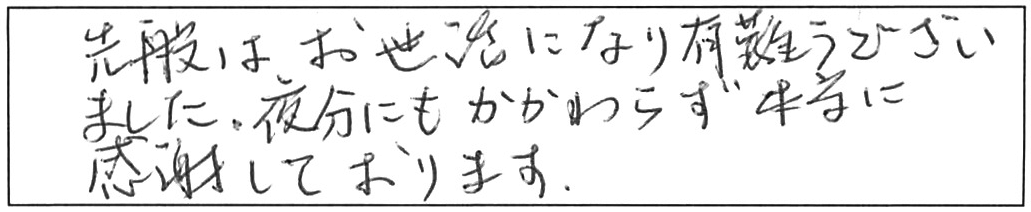 先般は、お世話になり有難うございい
ました。夜分にもかかわらず本当に
感謝しております.